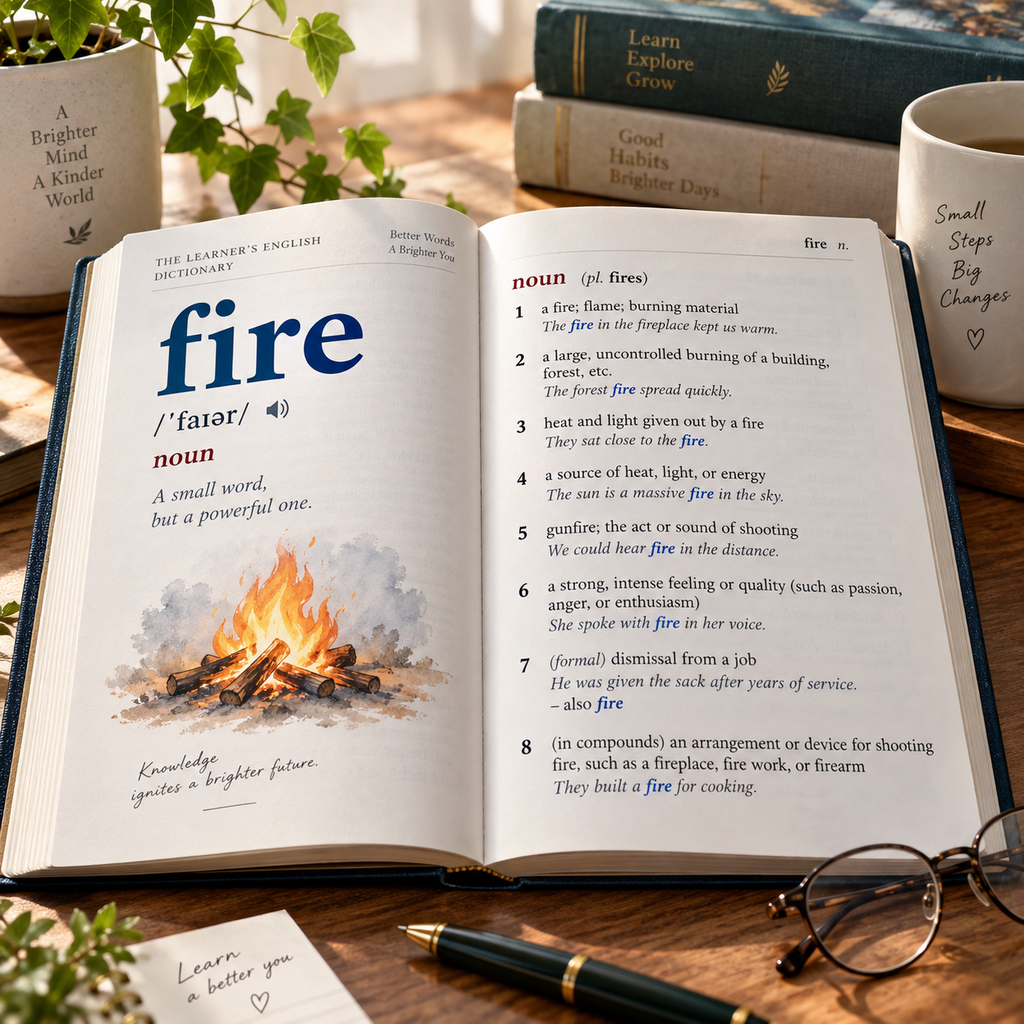 A
Brighter
Mind
A Kinder
World
Learn
Explore
Grow
Good
Habits
Brighter Days
Small
Steps
Big
Changes
THE LEARNER'S ENGLISH
DICTIONARY
Better Words
A Brighter You
fire
/ˈfaɪər/
noun
A small word,
but a powerful one.
Knowledge
ignites a brighter future.
fire n.
noun (pl. fires)
1 a fire; flame; burning material
The fire in the fireplace kept us warm.
2 a large, uncontrolled burning of a building,
forest, etc.
The forest fire spread quickly.
3 heat and light given out by a fire
They sat close to the fire.
4 a source of heat, light, or energy
The sun is a massive fire in the sky.
5 gunfire; the act or sound of shooting
We could hear fire in the distance.
6 a strong, intense feeling or quality (such as passion,
anger, or enthusiasm)
She spoke with fire in her voice.
7 (formal) dismissal from a job
He was given the sack after years of service.
– also fire
8 (in compounds) an arrangement or device for shooting
fire, such as a fireplace, fire work, or firearm
They built a fire for cooking.
Learn
a better you